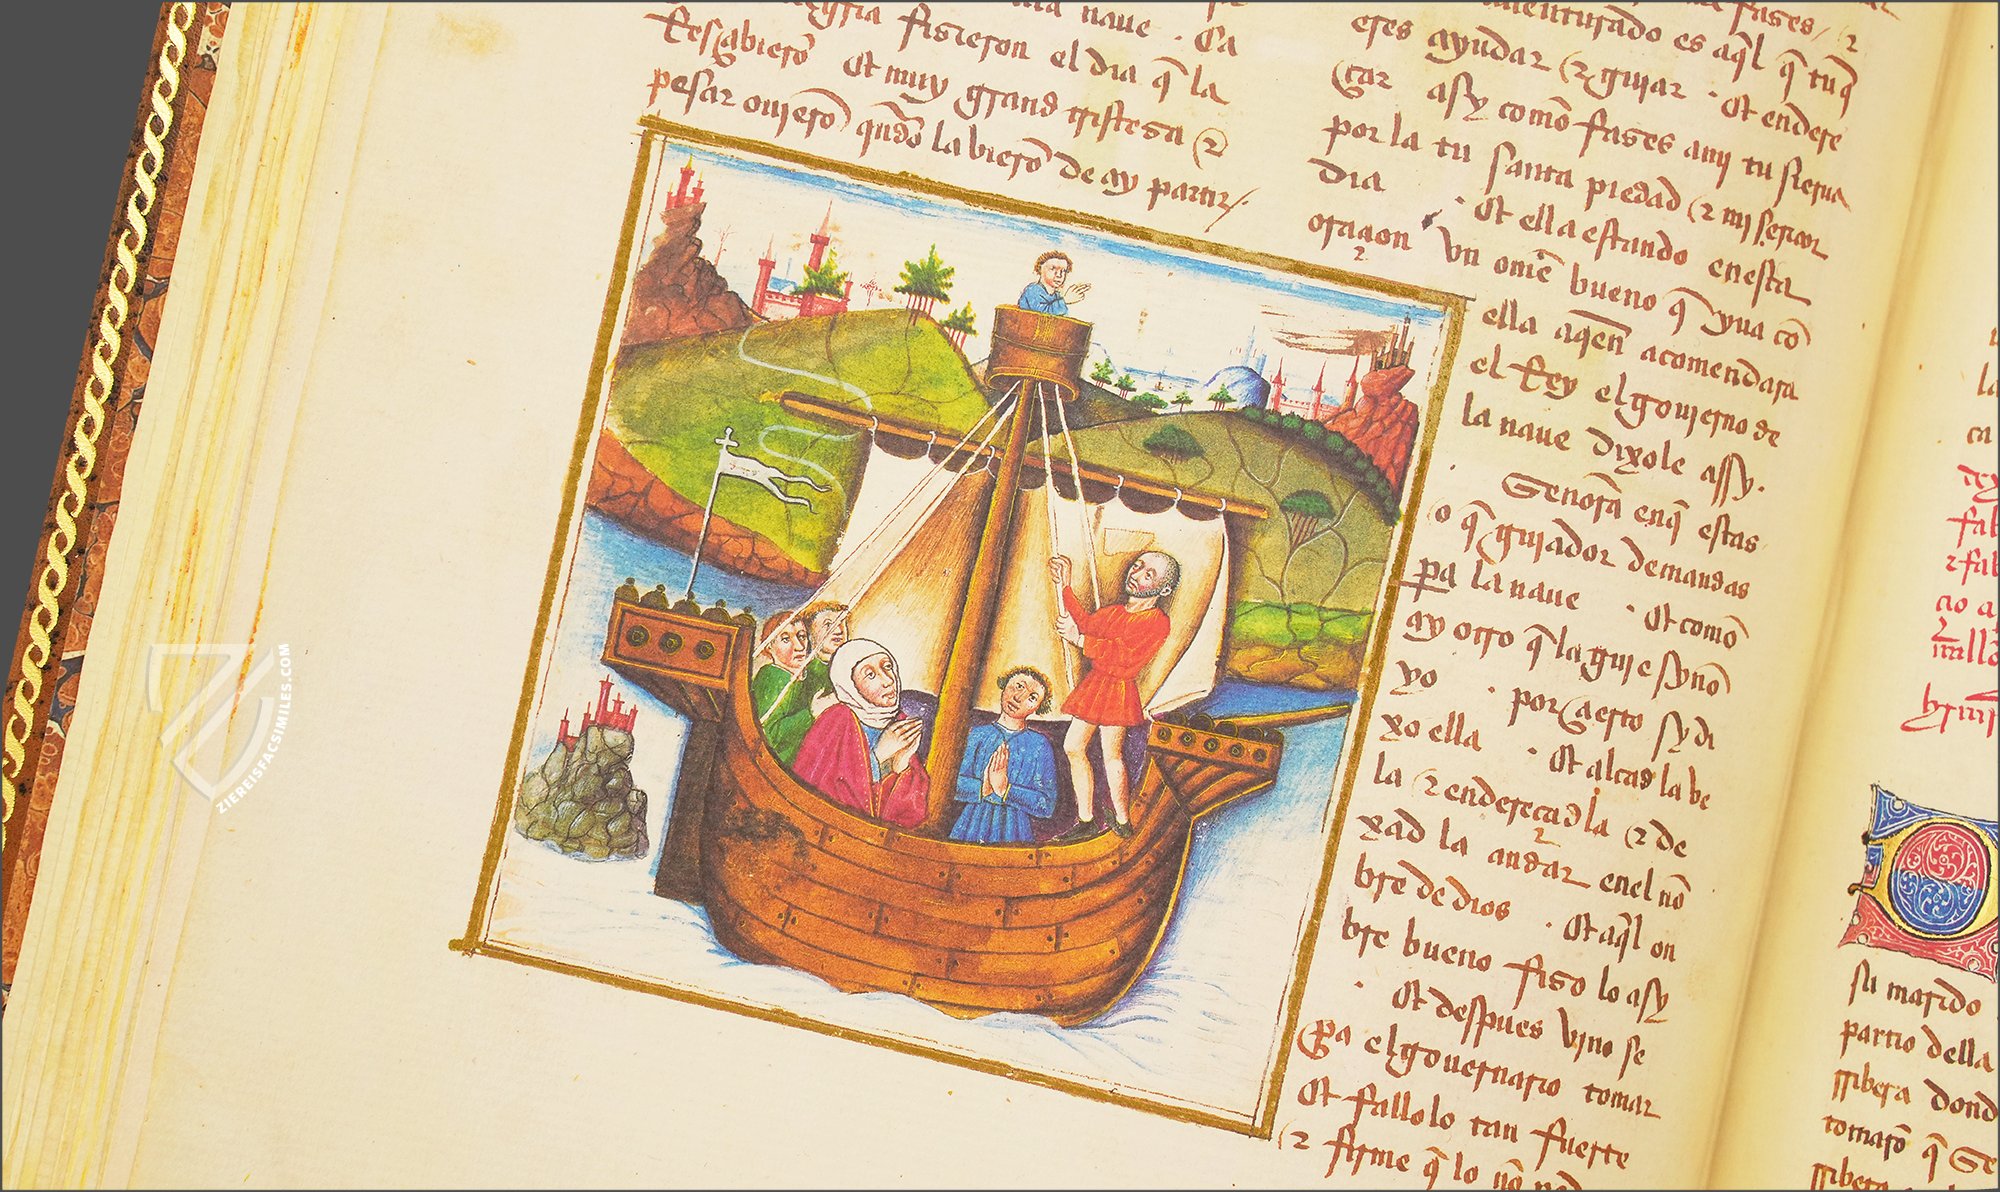 naue · Ca
fisieron el dia q̃ la
Resçabierõ Et muy grand tristesa ⁊
pesar ouierõ quãdo la vierõ de ay partir /
fases / ⁊
auenturado es aq̃l q̃ tu q̃
eres ayudar ⁊ guiar · Et endere
çar asy comõ fases a mj tu sierua
por la tu santa piedad ⁊ mi señor
dia · Et ella estando en esta
oraçion vn omẽ bueno q̃ yua cõ
ella a quẽ acomendara
el Rey el gouierno de
la naue dixole assy ·
Señora en q̃ estas
o q̃ guiador demandas
pa la naue · Et comõ
ay otro q̃ la guie synõ
yo · por çierto sy di
xo ella · Et alcad la ve
la ⁊ endereçad la ⁊ de
xad la andar en el nõ
bre de dios · Et aq̃l on
bre bueno fiso lo asy
· Et despues vino se
pa el gouernario tomar
Et fallolo tan fuerte
⁊ firme q̃ lo nõ
su marido
partio della
ssibera dond
tomarõ q̃ se
ssibera
ZIEREISFACSIMILES.COM